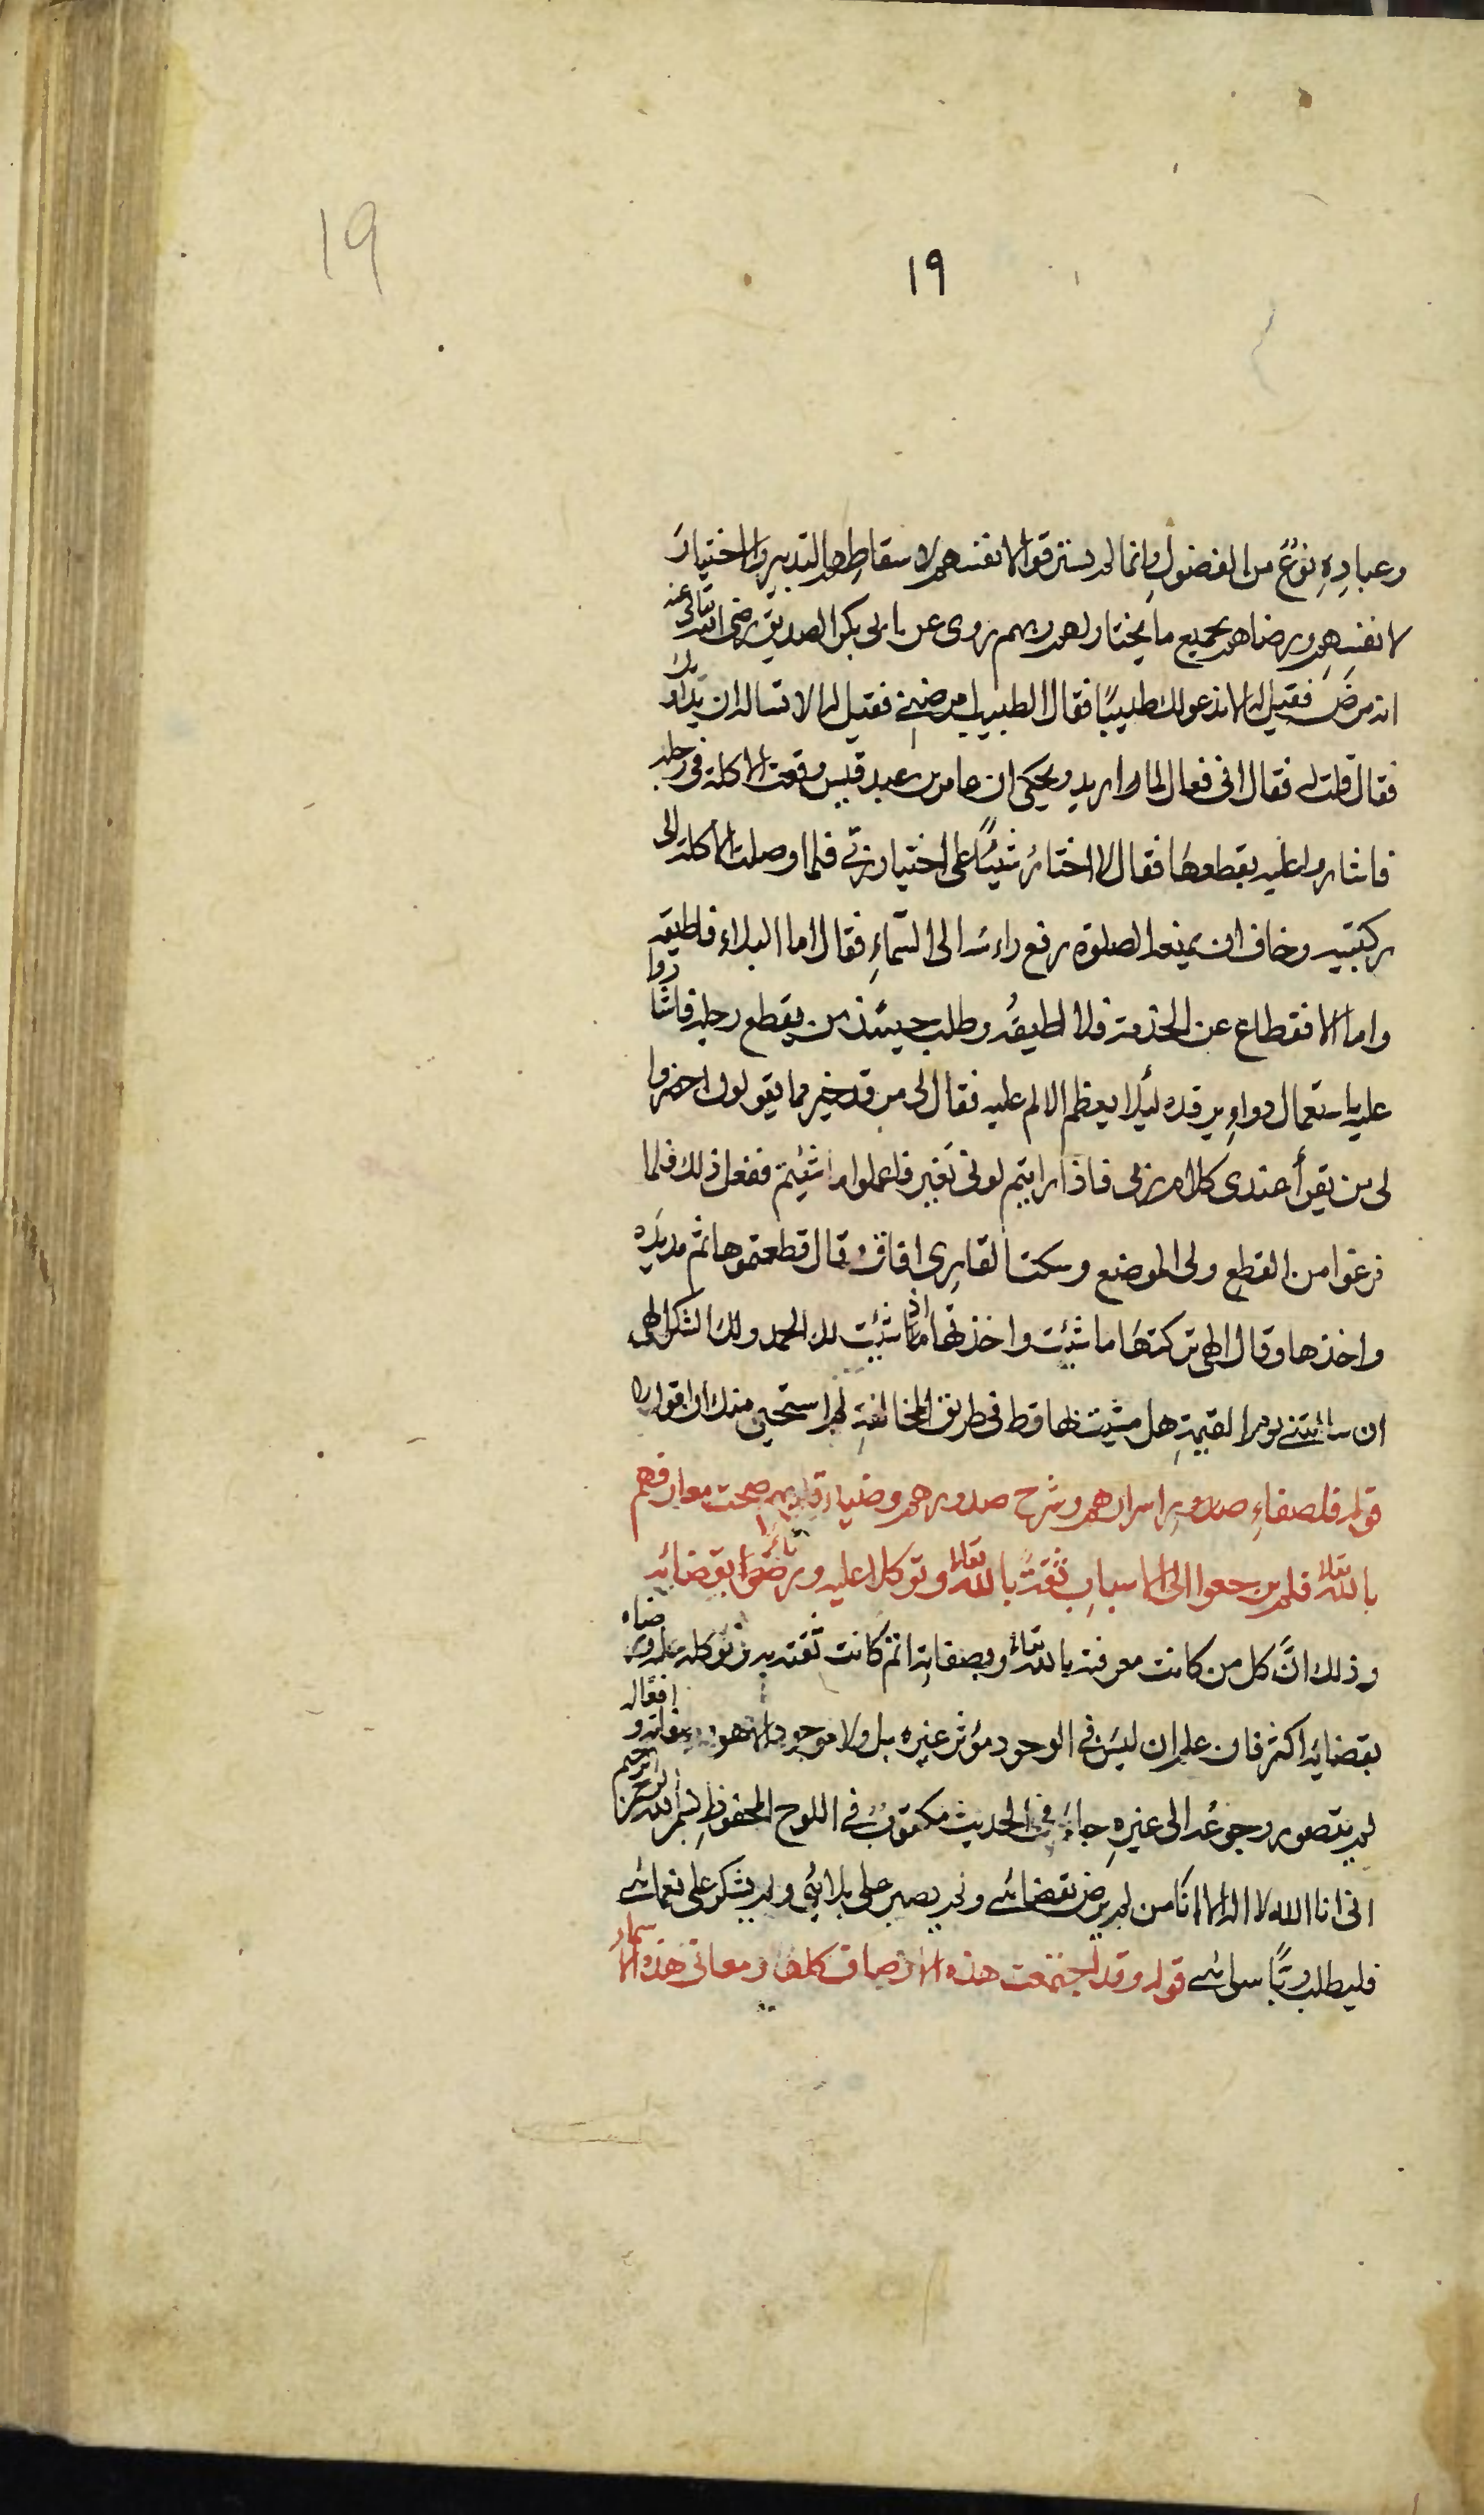 19
١٩
وعبادِهِ نوعٌ من الفضول وانما لم يسترقوا لانفسهم لاسقاطهم التدبير والاختيار
لانفسهم ورضاهم بجميع ما يختار لهم ربهم روى عن ابى بكر الصديق رضى الله تعالى عنه
انه مرض فقيل له الا ندعو لك طبيبًا فقال الطبيب امرضنى فقيل له الا تساله ان يداويك
فقال قلت له فقال انى فعال لما اريد ويحكى ان عامر بن عبد قيس وقعت الاكلة فى رجله
فاشاروا عليه بقطعها فقال لا اختار شيئًا على اختيار ربى فلما وصلت الاكلة الى
ركبتيه وخاف ان يمنعه الصلوة رفع راءسه الى السماءِ فقال اما البلاء فاطيقه
واما الانقطاع عن الخدمة فلا اطيقه وطلب حينئذ من يقطع رجله فاشاروا
عليه باستعمال دواءٍ يرقده ليلا يعظم الالم عليه فقال لى من قد خير مما يقولون احضروا
لى من يقرأ عندى كلام ربى فاذا رايتم لونى تغير فاعملوا ما شئيتم ففعل ذلك فلما
فرغوا من القطع ولى الموضع وسكت القارى افاق وقال قطعتموها ثم مد يده
واخذها وقال الهى تركتها ما شئت واخذتها اذا شئت لك الحمد ولك الشكر الهى
ان سائلتنى يوم القيمةِ هل مشيت بها قط فى طريق المخالفةِ لم استحيى منك ان اقول لا
قوله فلصفاءِ صدور اسرارهم وشرح صدورهم وضياء قلوبهم صحت معارفهم
بالله تعالى فلم يرجعوا الى الاسباب ثقةً بالله تعالى وتوكلا عليه ورضًا بقضائه
وذلك انَّ كل من كانت معرفته بالله تعالى وبصفاته اتم كانت ثقته به وتوكله عليه ورضاه
بقضايه اكثر فان علم ان ليس فى الوجود مؤثر غيره بل ولا موجود الا هو وصفاته وافعاله
لم يتصور رجوعُه الى غيرهِ جاءَ فى الحديث مكتوبٌ فى اللوح المحفوظِ بسم الله الرحمن الرحيم
انى انا الله لا اله الا انا من لم يرض بقضائى ولم يصبر على بلائى ولم يشكر على نعمائى
فليطلب ربًّا سوائى قوله وقد اجتمعت هذه الاوصاف كلها ومعانى هذه الاسماء